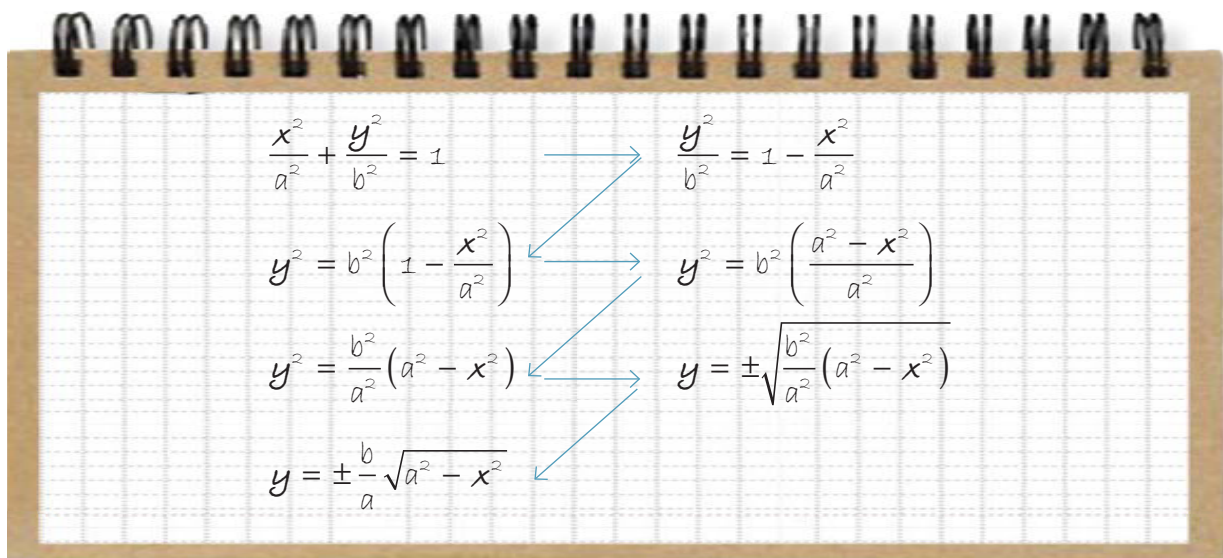 x²/a² + y²/b² = 1 → y²/b² = 1 − x²/a²
y² = b² (1 − x²/a²) → y² = b² ((a² − x²)/a²)
y² = b²/a² (a² − x²) → y = ±√(b²/a² (a² − x²))
y = ± b/a √(a² − x²)